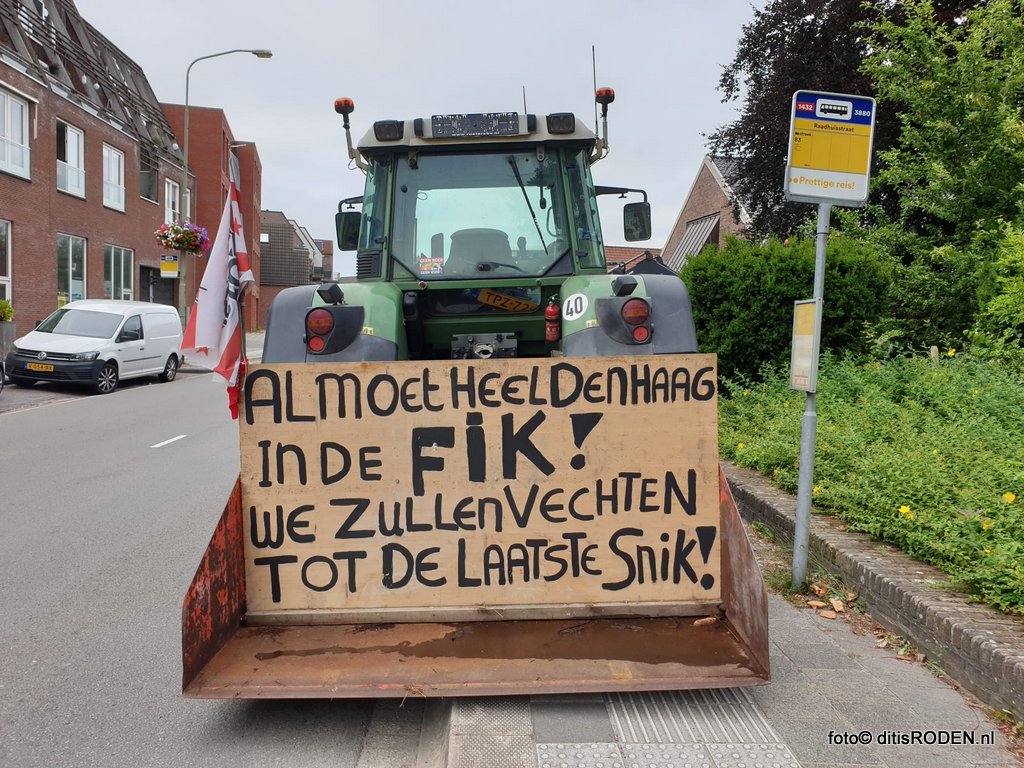 1432
3880
Raadhuisstraat
83
Prettige reis!
40
TPZ-7
ALMOET HEEL DEN HAAG
IN DE FIK!
WE ZULLEN VECHTEN
TOT DE LAATSTE SNIK!
foto© ditisRODEN.nl